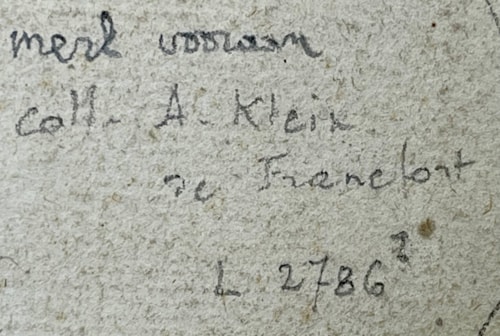 merk vooraan
coll. A. Klein
de Francfort
L 2786²